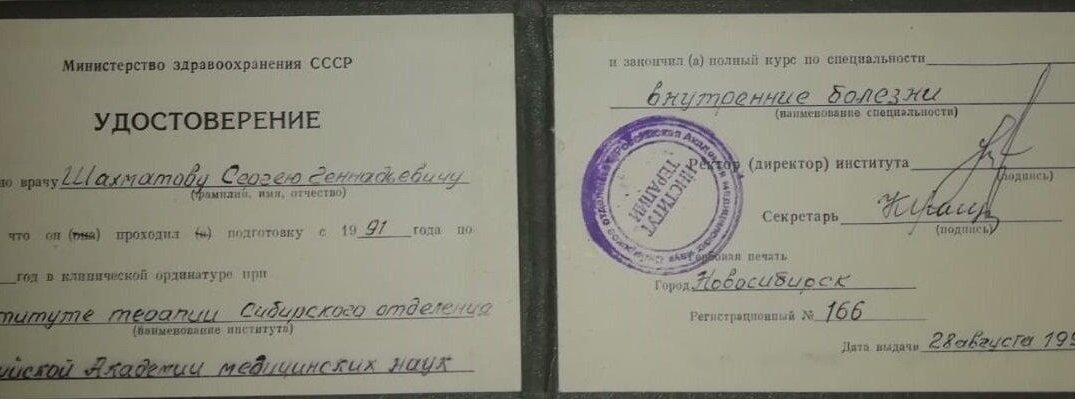 Министерство здравоохранения СССР
УДОСТОВЕРЕНИЕ
но врачу Шахматову Сергею Геннадьевичу
(фамилия, имя, отчество)
что он (она) проходил (а) подготовку с 19 91 года по
год в клинической ординатуре при
титуте терапии Сибирского отделения
(наименование института)
ийской Академии медицинских наук
и закончил (а) полный курс по специальности
внутренние болезни
(наименование специальности)
Ректор (директор) института
(подпись)
Секретарь
(подпись)
Гербовая печать
Город Новосибирск
Регистрационный № 166
Дата выдачи 28 августа 199
ИНСТИТУТ
ТЕРАПИИ